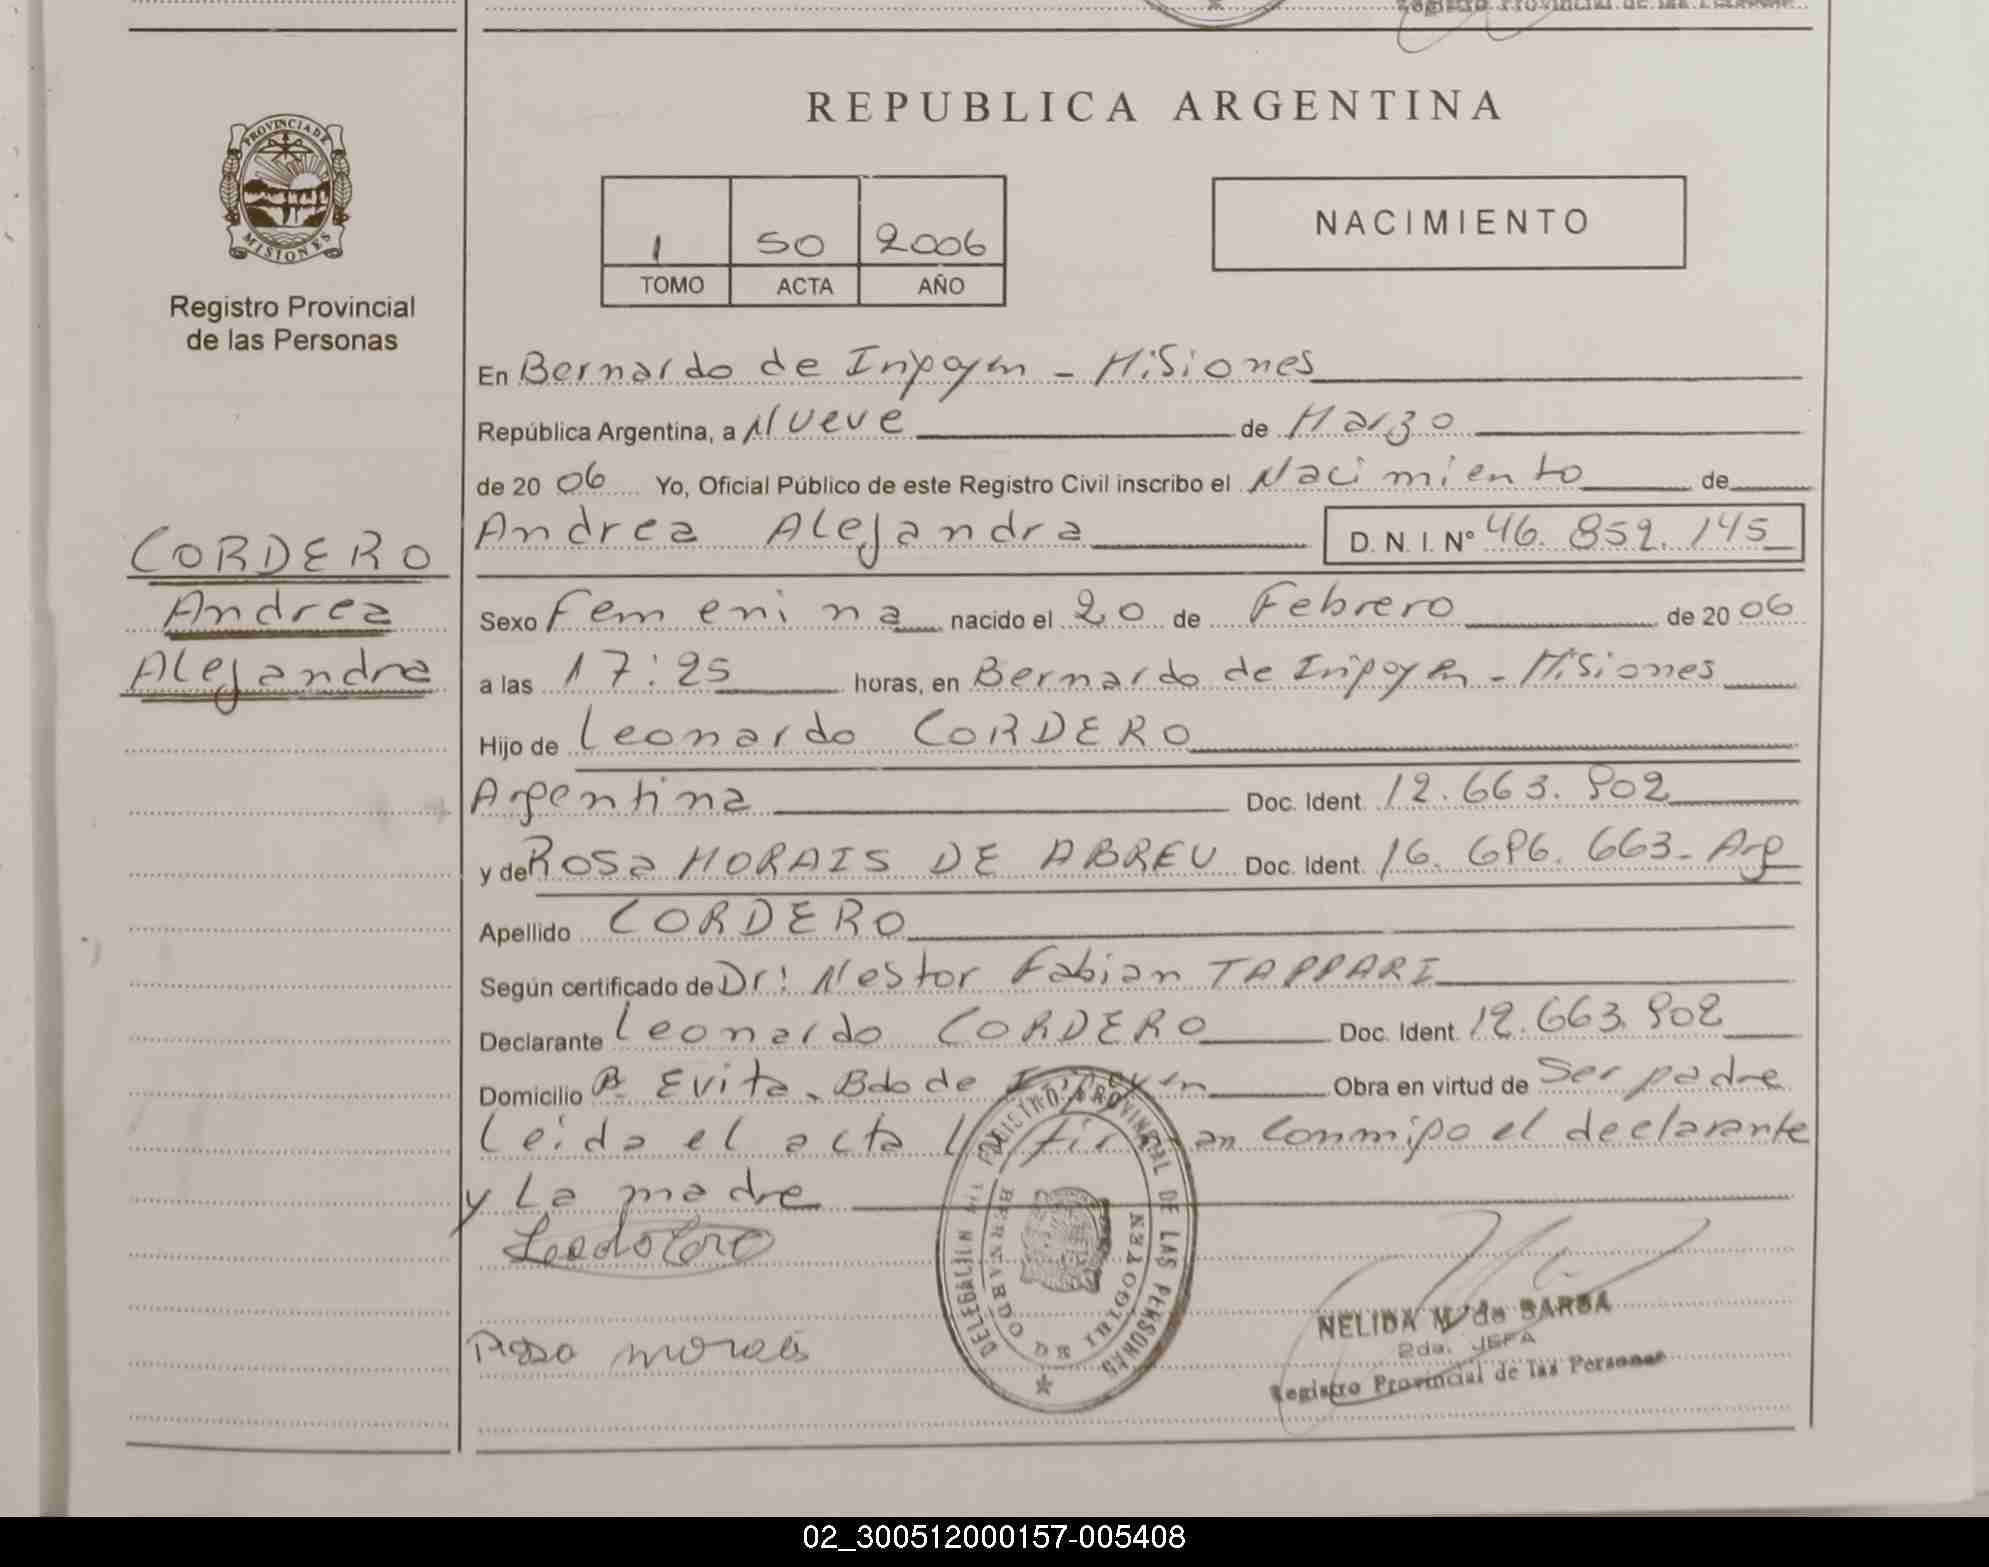 Registro Provincial de las Personas
REPUBLICA ARGENTINA
PROVINCIA DE
MISIONES
Registro Provincial
de las Personas
1 50 2006
TOMO ACTA AÑO
NACIMIENTO
En Bernardo de Irigoyen - Misiones
República Argentina, a Nueve de Marzo
de 20 06 Yo, Oficial Público de este Registro Civil inscribo el Nacimiento de
Andrea Alejandra D. N. I. Nº 46. 859. 145
CORDERO
Andrea
Alejandra
Sexo Femenina nacido el 20 de Febrero de 20 06
a las 17:25 horas, en Bernardo de Irigoyen - Misiones
Hijo de Leonardo CORDERO
Argentina Doc. Ident. 12.663.902
y de Rosa MORAIS DE ABREU Doc. Ident. 16. 696. 663- Arg
Apellido CORDERO
Según certificado de Dr: Nestor Fabian TAPPARI
Declarante Leonardo CORDERO Doc. Ident. 12.663.902
Domicilio Bº Evita. Bdo de Irigoyen Obra en virtud de Ser padre
Leida el acta la firman conmigo el declarante
y La madre
Rosa morais
DELEGACION REGISTRO PROVINCIAL DE LAS PERSONAS
BERNARDO DE IRIGOYEN
NELIDA M. de BARBA
2da. JEFA
Registro Provincial de las Personas
02_300512000157-005408